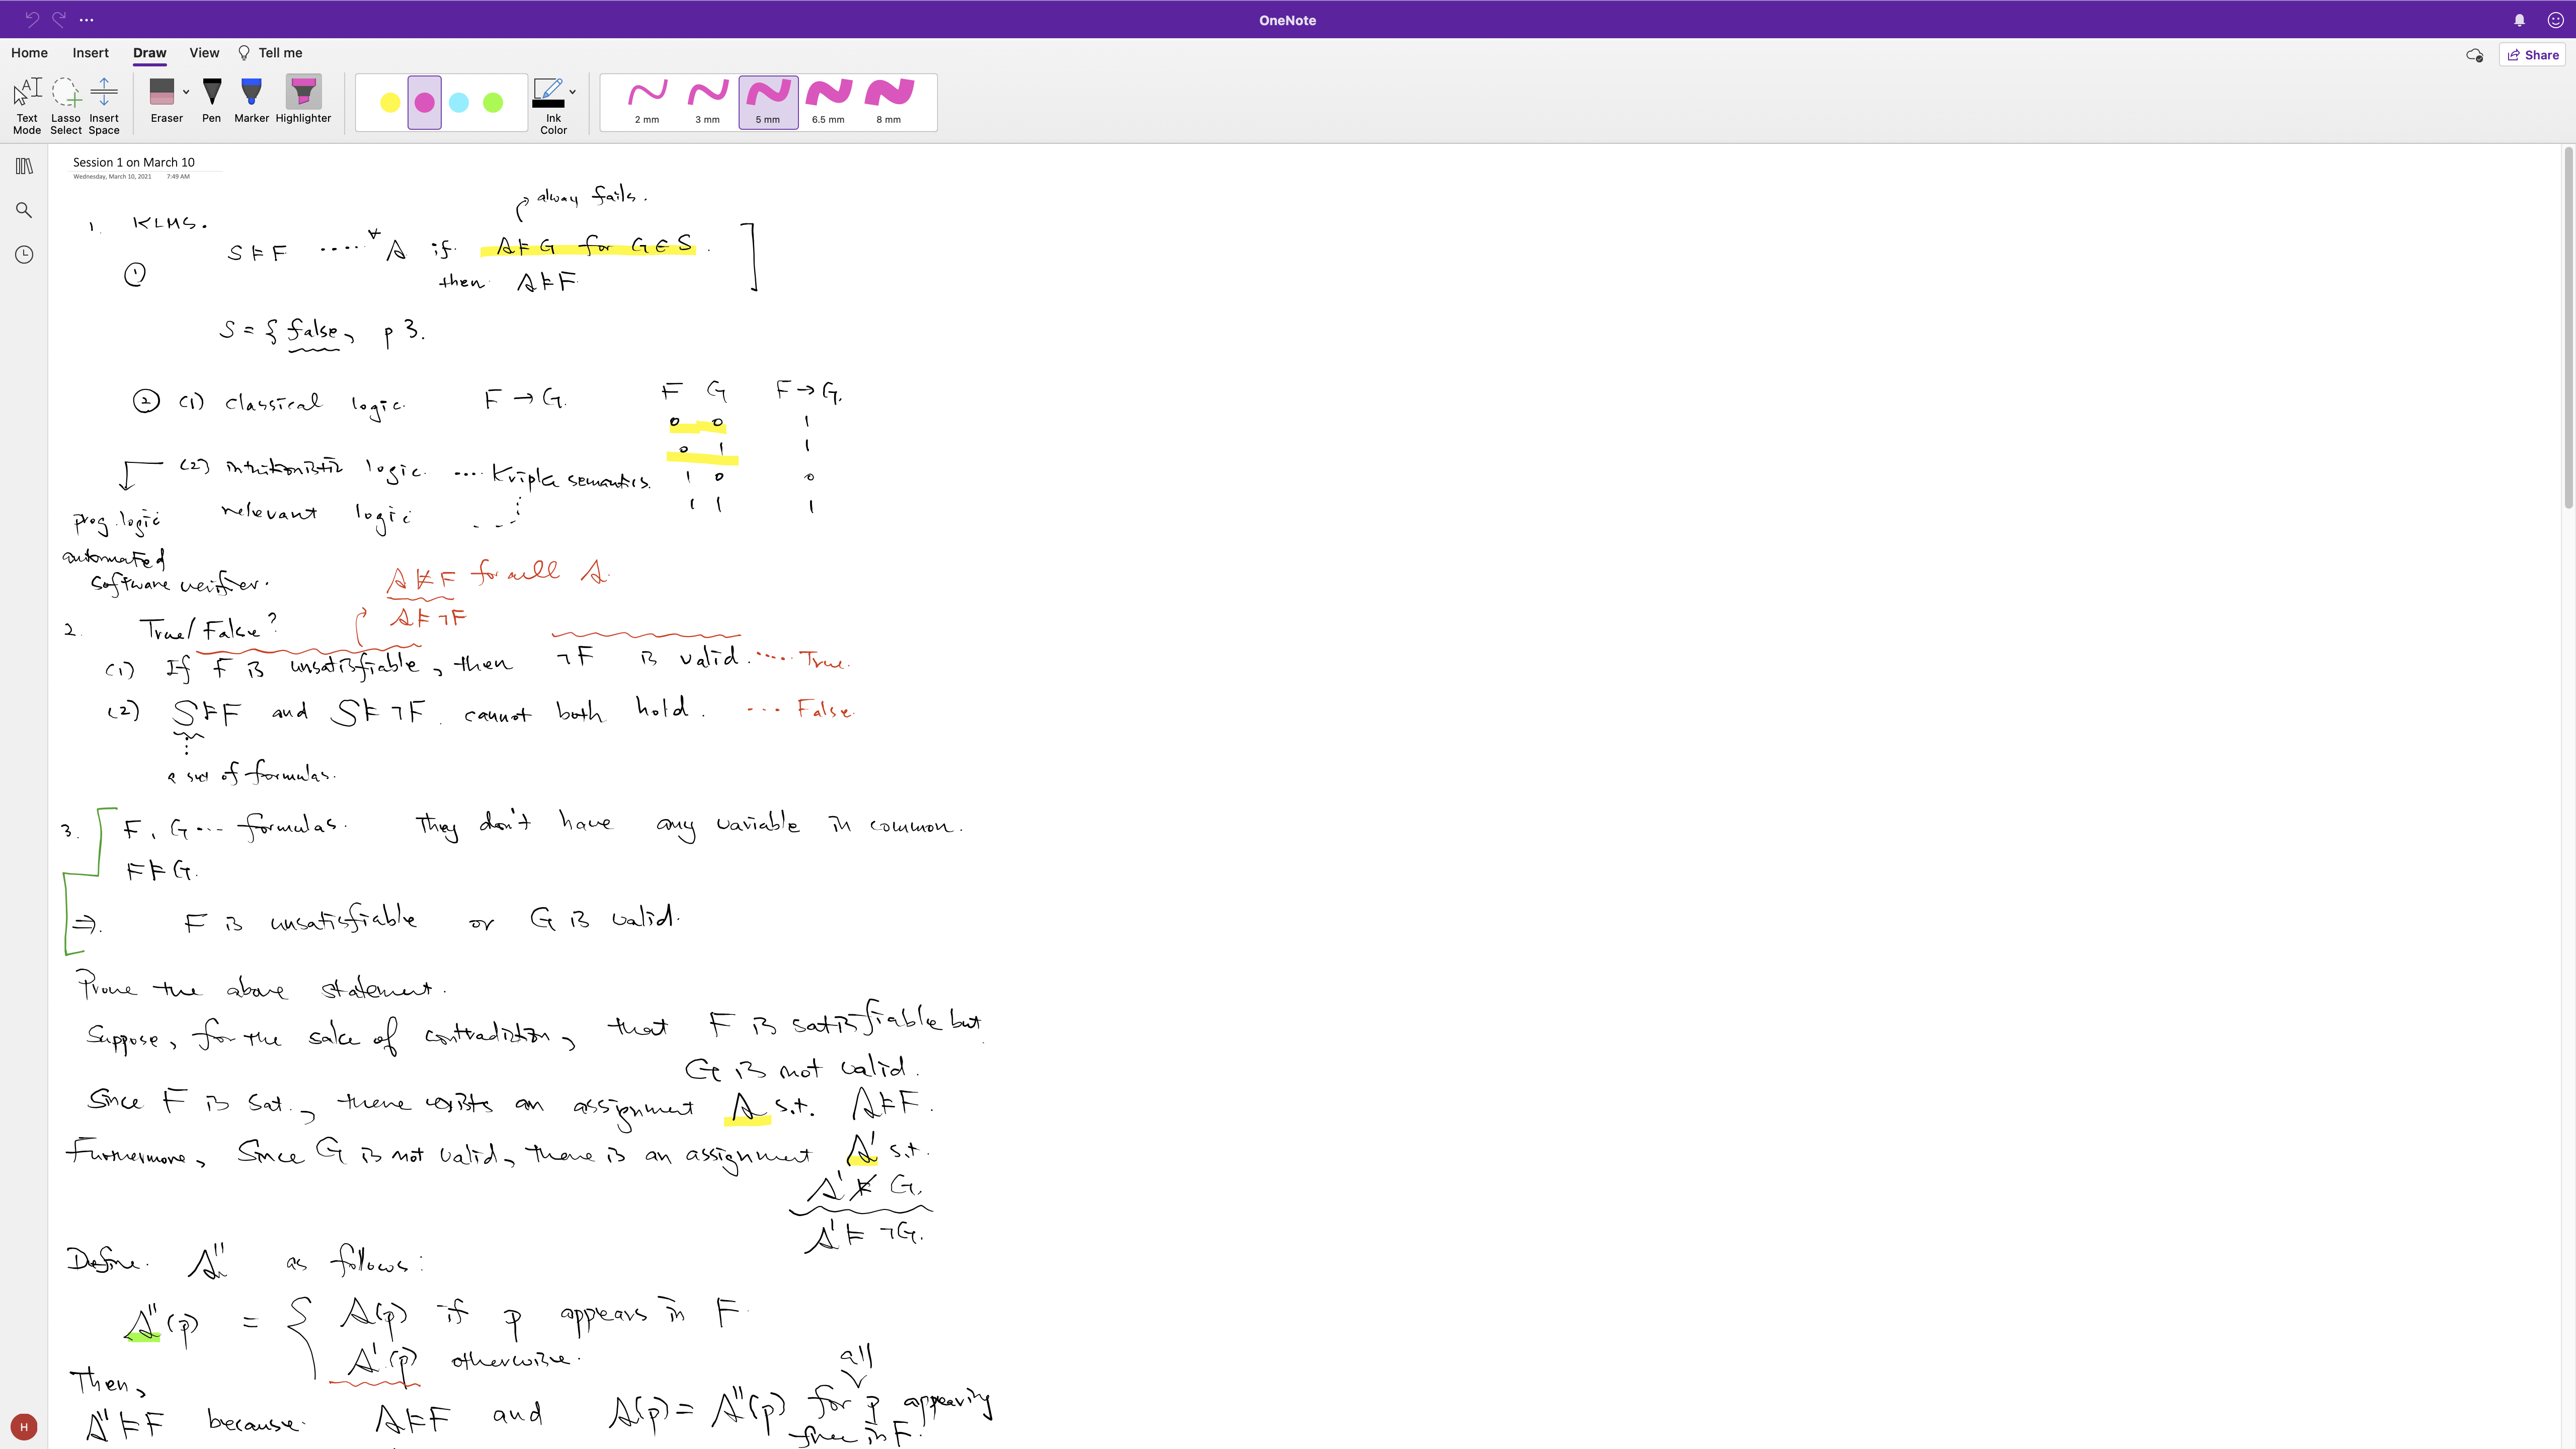 OneNote
Home Insert Draw View Tell me
Share
Text Mode
Lasso Select
Insert Space
Eraser
Pen
Marker
Highlighter
Ink Color
2 mm
3 mm
5 mm
6.5 mm
8 mm
Session 1 on March 10
Wednesday, March 10, 2021 7:49 AM
alway fails.
1. KLMS.
① S⊨F ..... ∀A if A⊨G for G∈S.
then A⊨F
S = { false, p }.
② (1) classical logic. F → G.
F G F → G.
0 0 1
0 1 1
1 0 0
1 1 1
(2) intuitionistic logic. .... Kripke semantics.
relevant logic
prog. logic
automated
software verifier.
A⊭F for all A.
A⊨¬F
2. True/False?
(1) If F is unsatisfiable, then ¬F is valid. ..... True.
(2) S⊨F and S⊨¬F cannot both hold. ... False.
a set of formulas.
3. F, G ... formulas. They don't have any variable in common.
F⊨G.
⇒. F is unsatisfiable or G is valid.
Prove the above statement.
Suppose, for the sake of contradiction, that F is satisfiable but
G is not valid.
Since F is sat., there exists an assignment A s.t. A⊨F.
Furthermore, since G is not valid, there is an assignment A' s.t.
A'⊭G.
A'⊨¬G.
Define A'' as follows:
A''(p) = { A(p) if p appears in F.
A'(p) otherwise.
Then,
all
A''⊨F because A⊨F and A(p) = A''(p) for p appearing
free in F.
H